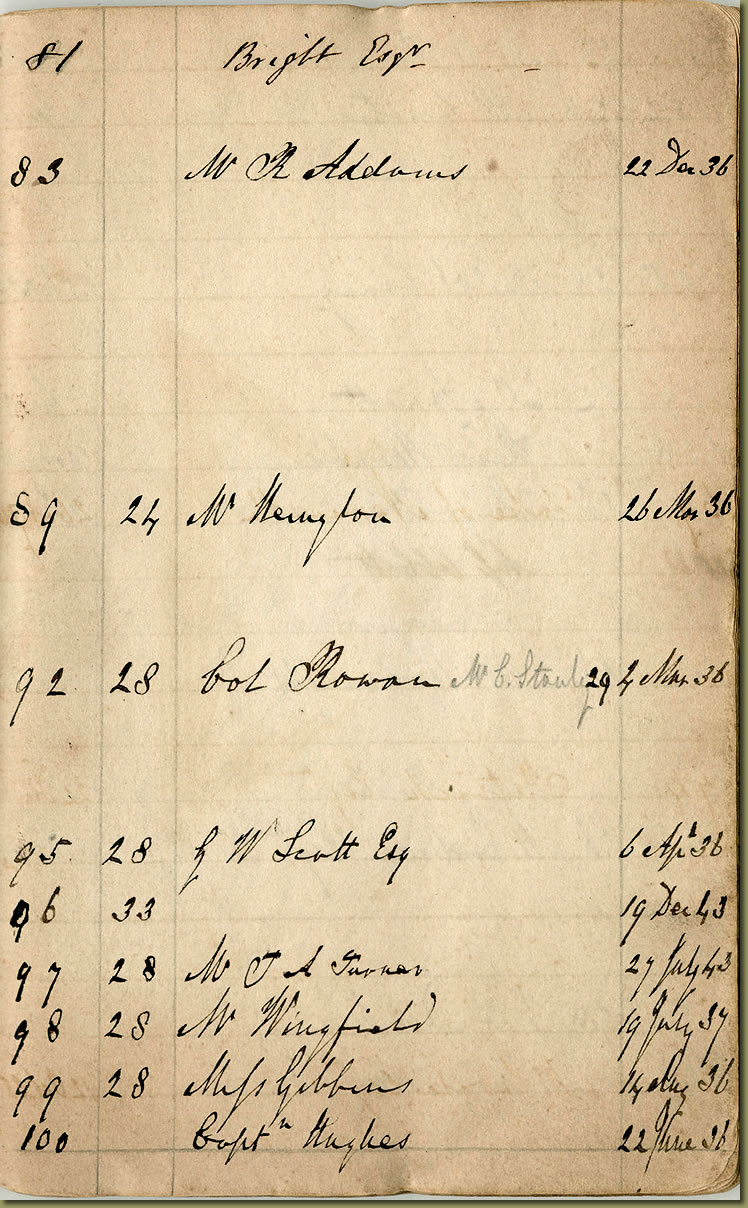 81 Bright Esqr
83 Mr R Addams 22 Dec 36
89 24 Mr 26 Mar 36
92 28 Col Rowan Mr C. Stanley 29 4 Mar 36
95 28 G W Scott Esq 6 Apl 36
96 33 19 Dec 43
97 28 Mr T A Turner 27 July 43
98 28 Mr Wingfield 19 July 37
99 28 Miss Gibbins 14 Aug 36
100 Captn Hughes 22 June 36